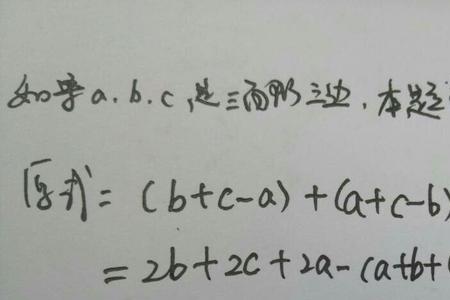 如果a.b.c,是三角形三边,本题
原式=(b+c-a)+(a+c-b)
=2b+2c+2a-(a+b+